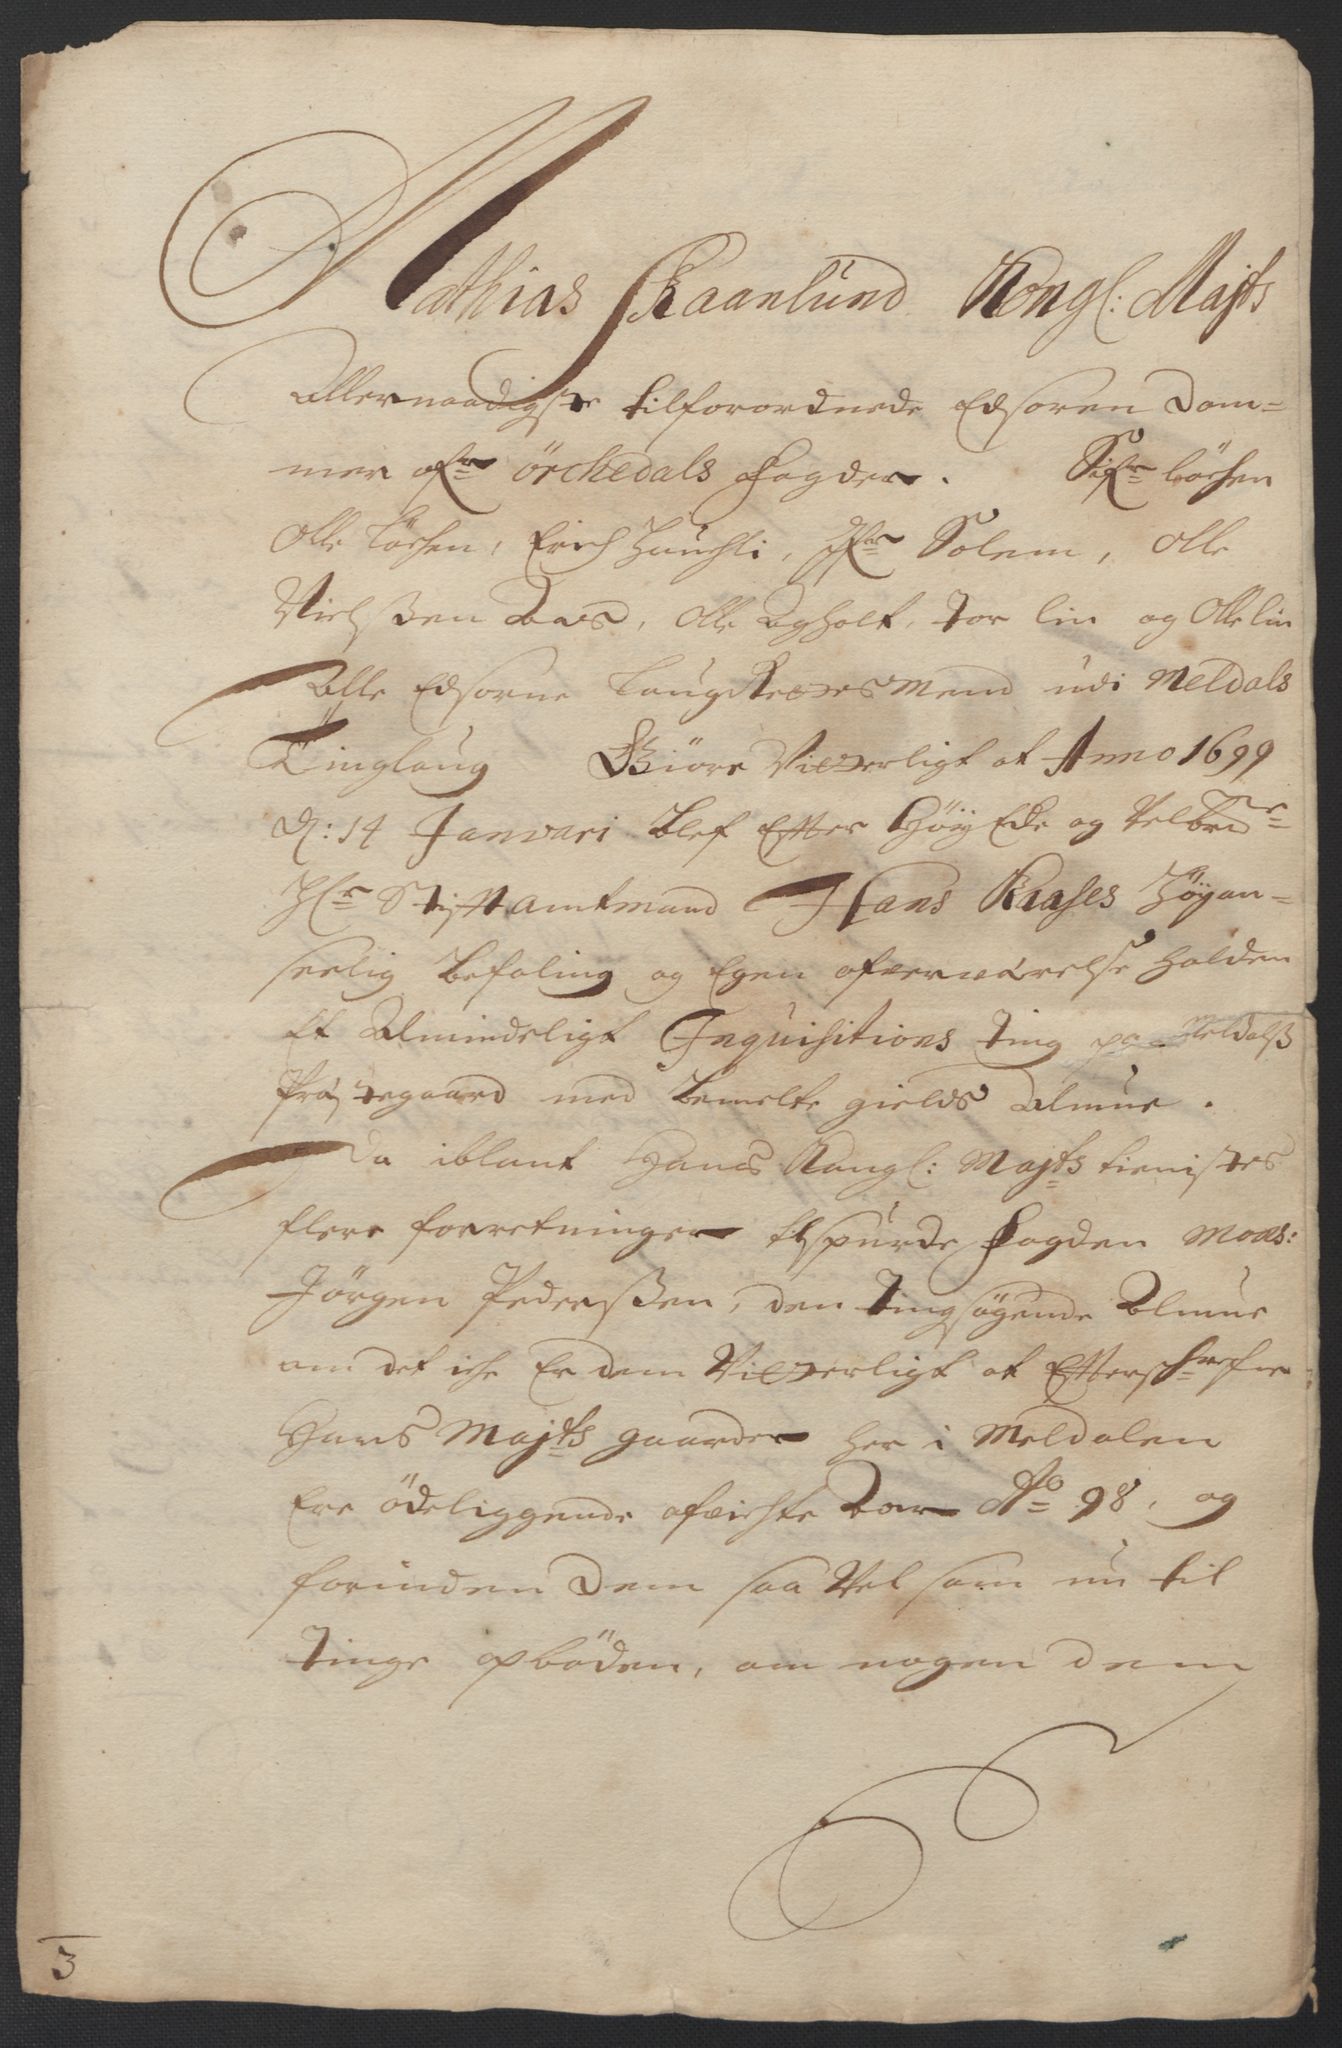 Mathias Skaanlund Kongl: Majts
Allernaadigste tilforordnede Edsoren Dom-
mer ofr örchedals fogderi. Sifr löchen
Olle löchen, Erich Hauchli, Ifr Solem, Olle
Nielßen Aas, Olle Agholt, Tor lin og Olle lin
Alle Edsorne LaugRettesMend udi Meldals
Tinglaug Giöre Vitterligt at Anno 1699
d: 14 Januari blef Efter Höy Ede og Velbrde
Hr Stiftamtmand Hans Kaases Höyan-
seelig befaling og Egen ofverværelse holden
Et Almindeligt Inquisitions Ting paa Meldalß
Præstegaard med bemelte gields Almue.
Da iblant Hans Kongl: Majts tienistes
flere forretninger tilspurde fogden Mons:
Jörgen Pederßen, den Tingsögende Almue
om det iche Er dem Vitterligt at Efterschrefne
Hans Majts gaarder her i Meldalen
Ere ödeliggende afvichte Aar Ao 98, og
forinden dem saa Vel som nu til
Tinge opböden, om nogen dem
3